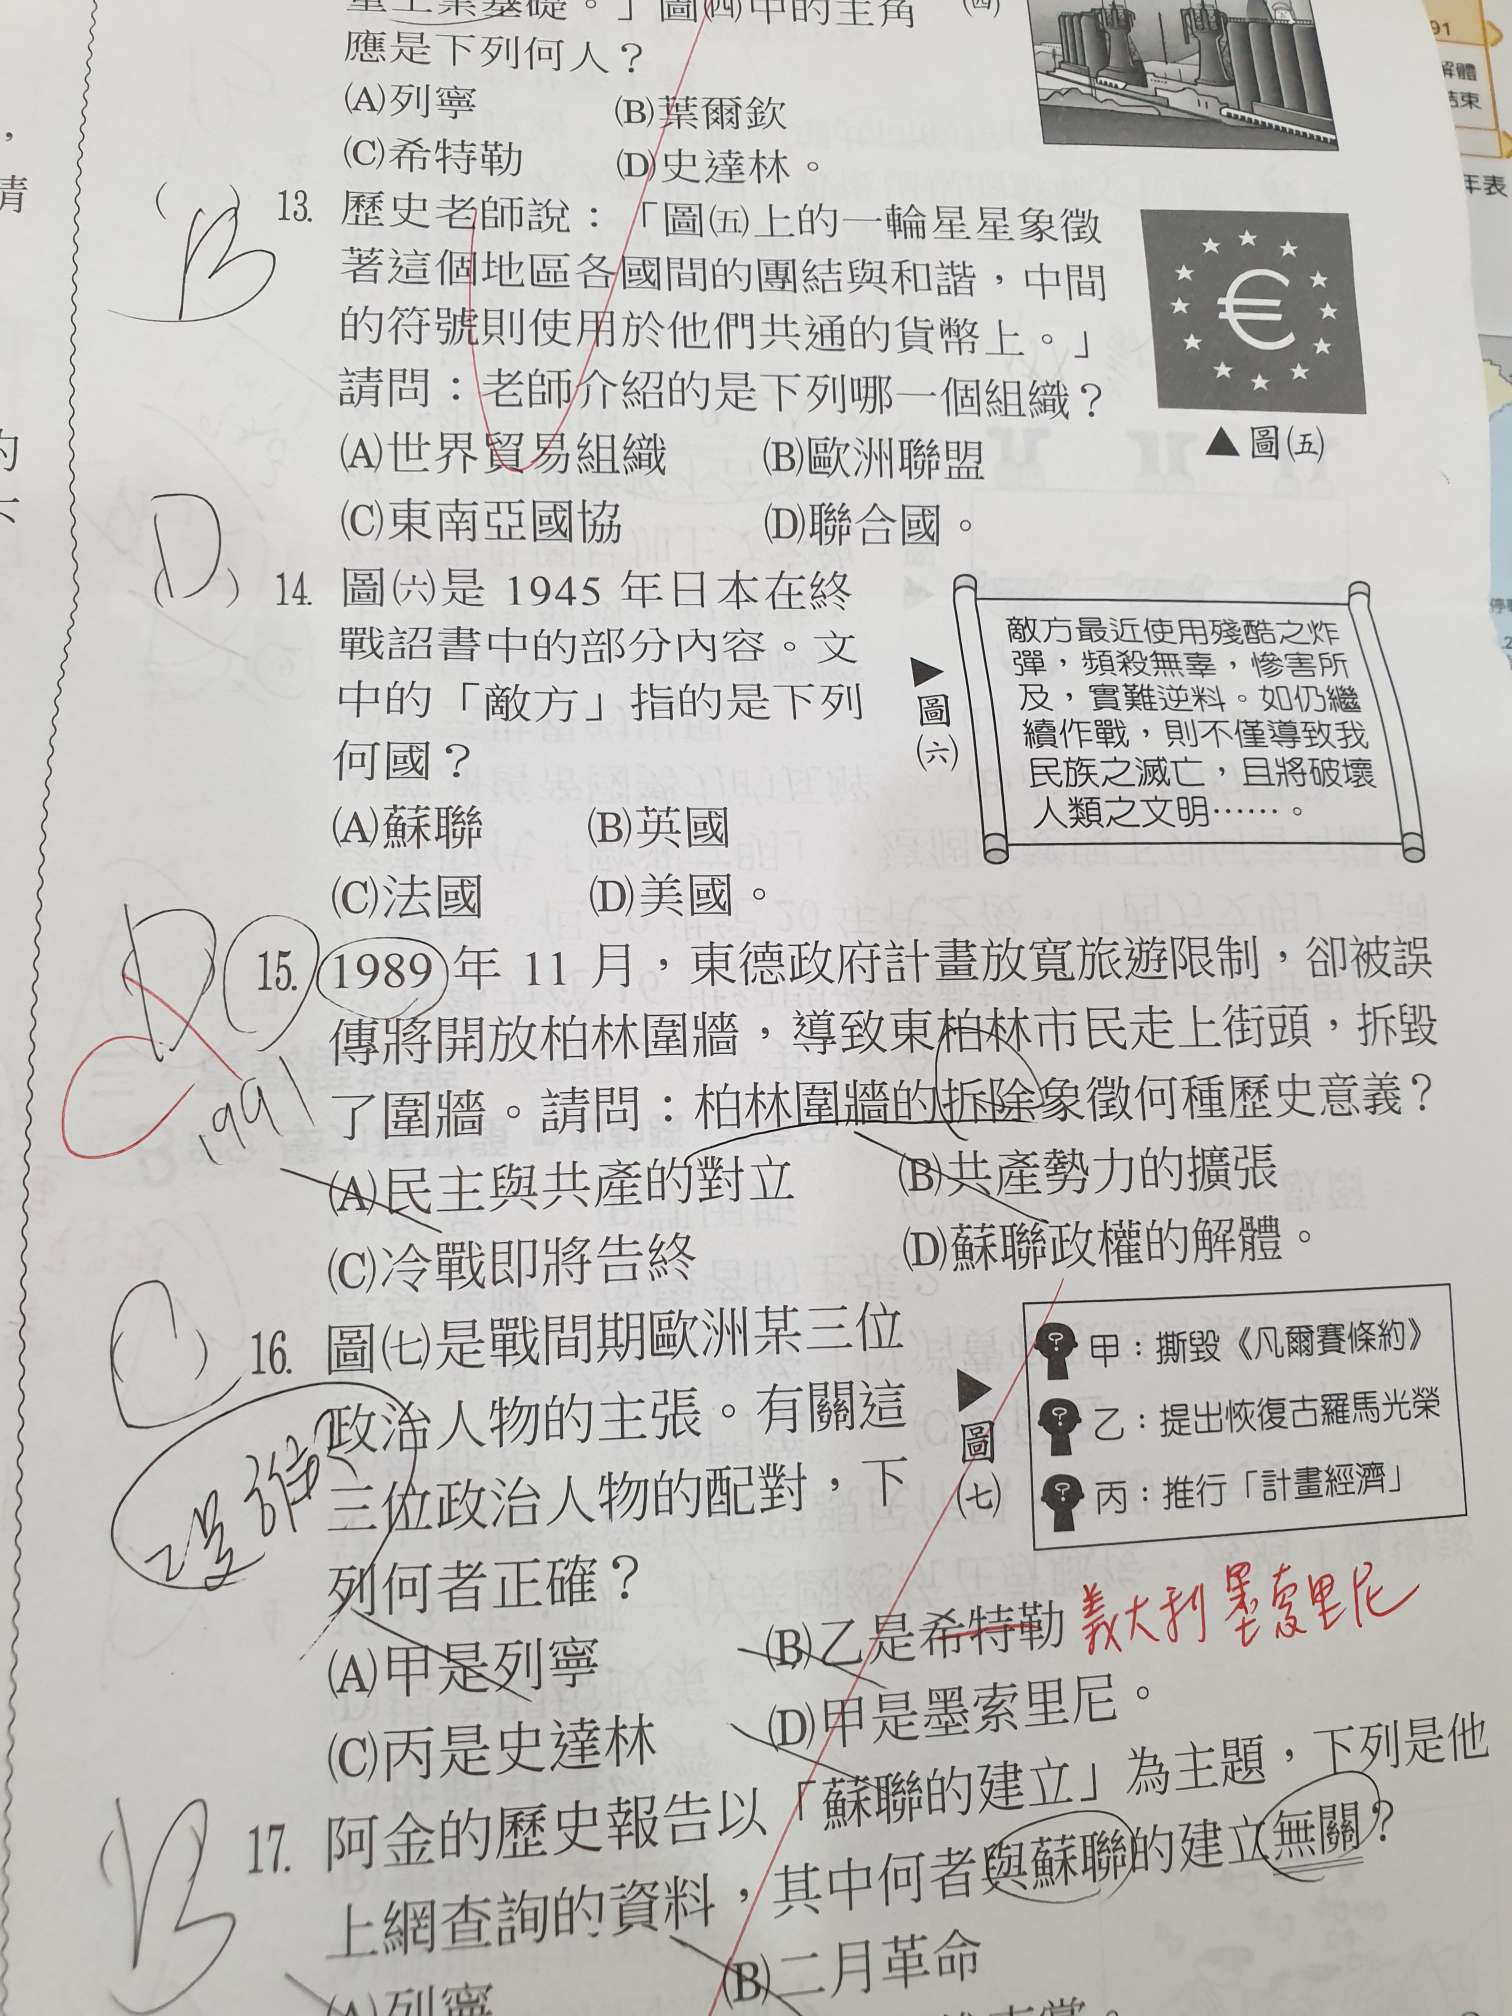 重工業基礎。」圖㈣中的主角
㈣
應是下列何人？
(A)列寧
(B)葉爾欽
(C)希特勒
(D)史達林。
91
解體
結束
年表
情
B
( ) 13. 歷史老師說：「圖㈤上的一輪星星象徵
著這個地區各國間的團結與和諧，中間
的符號則使用於他們共通的貨幣上。」
請問：老師介紹的是下列哪一個組織？
(A)世界貿易組織
(B)歐洲聯盟
(C)東南亞國協
(D)聯合國。
€
▲圖㈤
D
( ) 14. 圖㈥是 1945 年日本在終
戰詔書中的部分內容。文
中的「敵方」指的是下列
何國？
(A)蘇聯
(B)英國
(C)法國
(D)美國。
▶圖㈥
敵方最近使用殘酷之炸
彈，頻殺無辜，慘害所
及，實難逆料。如仍繼
續作戰，則不僅導致我
民族之滅亡，且將破壞
人類之文明……。
D
( ) 15. 1989 年 11 月，東德政府計畫放寬旅遊限制，卻被誤
傳將開放柏林圍牆，導致東柏林市民走上街頭，拆毀
了圍牆。請問：柏林圍牆的拆除象徵何種歷史意義？
1991
(A)民主與共產的對立
(B)共產勢力的擴張
(C)冷戰即將告終
(D)蘇聯政權的解體。
C
( ) 16. 圖㈦是戰間期歐洲某三位
政治人物的主張。有關這
三位政治人物的配對，下
列何者正確？
▶圖㈦
甲：撕毀《凡爾賽條約》
乙：提出恢復古羅馬光榮
丙：推行「計畫經濟」
乙是誰?
(A)甲是列寧
(B)乙是希特勒
義大利 墨索里尼
(C)丙是史達林
(D)甲是墨索里尼。
B
( ) 17. 阿金的歷史報告以「蘇聯的建立」為主題，下列是他
上網查詢的資料，其中何者與蘇聯的建立無關？
(A)列寧
(B)二月革命